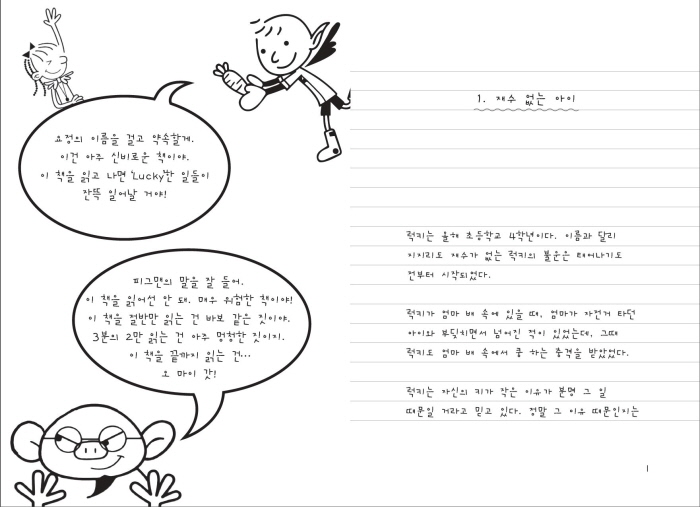 요정의 이름을 걸고 약속할게.
이건 아주 신비로운 책이야.
이 책을 읽고 나면 'Lucky'한 일들이
잔뜩 일어날 거야!
피그맨의 말을 잘 들어.
이 책을 읽어선 안 돼. 매우 위험한 책이야!
이 책을 절반만 읽는 건 바보 같은 짓이야.
3분의 2만 읽는 건 아주 멍청한 짓이지.
이 책을 끝까지 읽는 건...
오 마이 갓!
1. 재수 없는 아이
럭키는 올해 초등학교 4학년이다. 이름과 달리
지지리도 재수가 없는 럭키의 불운은 태어나기도
전부터 시작되었다.
럭키가 엄마 배 속에 있을 때, 엄마가 자전거 타던
아이와 부딪치면서 넘어진 적이 있었는데, 그때
럭키도 엄마 배 속에서 쿵 하는 충격을 받았었다.
럭키는 자신의 키가 작은 이유가 분명 그 일
때문일 거라고 믿고 있다. 정말 그 이유 때문인지는
1